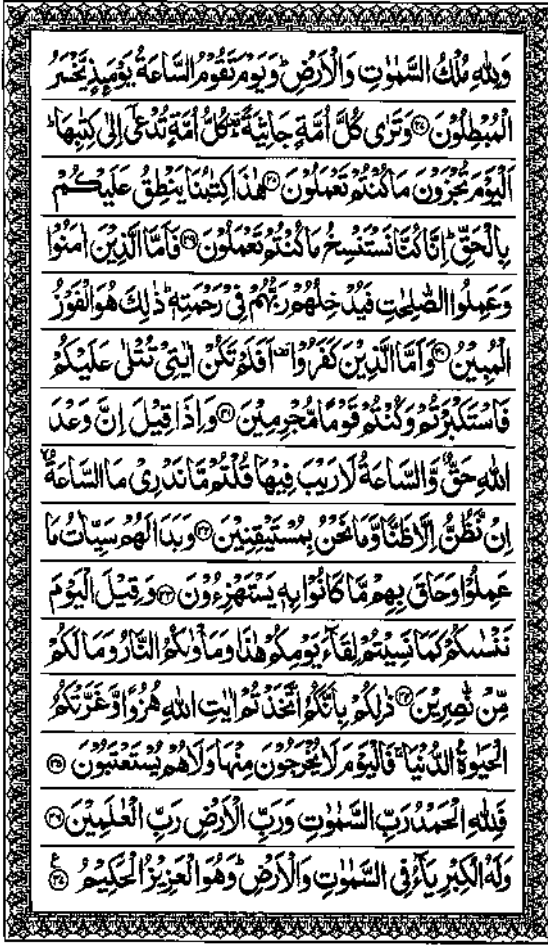 وَلِلّٰهِ مُلْكُ السَّمٰوٰتِ وَالْاَرْضِ ؕ وَيَوْمَ تَقُوْمُ السَّاعَةُ يَوْمَئِذٍ يَّخْسَرُ
الْمُبْطِلُوْنَ ﴿۲۷﴾ وَتَرٰى كُلَّ اُمَّةٍ جَاثِيَةً ۟ كُلُّ اُمَّةٍ تُدْعٰۤى اِلٰى كِتٰبِهَا ؕ
اَلْيَوْمَ تُجْزَوْنَ مَا كُنْتُمْ تَعْمَلُوْنَ ﴿۲۸﴾ هٰذَا كِتٰبُنَا يَنْطِقُ عَلَيْكُمْ
بِالْحَقِّ ؕ اِنَّا كُنَّا نَسْتَنْسِخُ مَا كُنْتُمْ تَعْمَلُوْنَ ﴿۲۹﴾ فَاَمَّا الَّذِيْنَ اٰمَنُوْا
وَعَمِلُوا الصّٰلِحٰتِ فَيُدْخِلُهُمْ رَبُّهُمْ فِيْ رَحْمَتِهٖ ؕ ذٰلِكَ هُوَ الْفَوْزُ
الْمُبِيْنُ ﴿۳۰﴾ وَاَمَّا الَّذِيْنَ كَفَرُوْا ۟ اَفَلَمْ تَكُنْ اٰيٰتِيْ تُتْلٰى عَلَيْكُمْ
فَاسْتَكْبَرْتُمْ وَكُنْتُمْ قَوْمًا مُّجْرِمِيْنَ ﴿۳۱﴾ وَاِذَا قِيْلَ اِنَّ وَعْدَ
اللّٰهِ حَقٌّ وَّالسَّاعَةُ لَا رَيْبَ فِيْهَا قُلْتُمْ مَّا نَدْرِيْ مَا السَّاعَةُ ۙ
اِنْ نَّظُنُّ اِلَّا ظَنًّا وَّمَا نَحْنُ بِمُسْتَيْقِنِيْنَ ﴿۳۲﴾ وَبَدَا لَهُمْ سَيِّاٰتُ مَا
عَمِلُوْا وَحَاقَ بِهِمْ مَّا كَانُوْا بِهٖ يَسْتَهْزِءُوْنَ ﴿۳۳﴾ وَقِيْلَ الْيَوْمَ
نَنْسٰىكُمْ كَمَا نَسِيْتُمْ لِقَآءَ يَوْمِكُمْ هٰذَا وَمَاْوٰىكُمُ النَّارُ وَمَا لَكُمْ
مِّنْ نّٰصِرِيْنَ ﴿۳۴﴾ ذٰلِكُمْ بِاَنَّكُمُ اتَّخَذْتُمْ اٰيٰتِ اللّٰهِ هُزُوًا وَّغَرَّتْكُمُ
الْحَيٰوةُ الدُّنْيَا ۚ فَالْيَوْمَ لَا يُخْرَجُوْنَ مِنْهَا وَلَا هُمْ يُسْتَعْتَبُوْنَ ﴿۳۵﴾
فَلِلّٰهِ الْحَمْدُ رَبِّ السَّمٰوٰتِ وَرَبِّ الْاَرْضِ رَبِّ الْعٰلَمِيْنَ ﴿۳۶﴾
وَلَهُ الْكِبْرِيَآءُ فِي السَّمٰوٰتِ وَالْاَرْضِ ؕ وَهُوَ الْعَزِيْزُ الْحَكِيْمُ ﴿۳۷﴾ ع